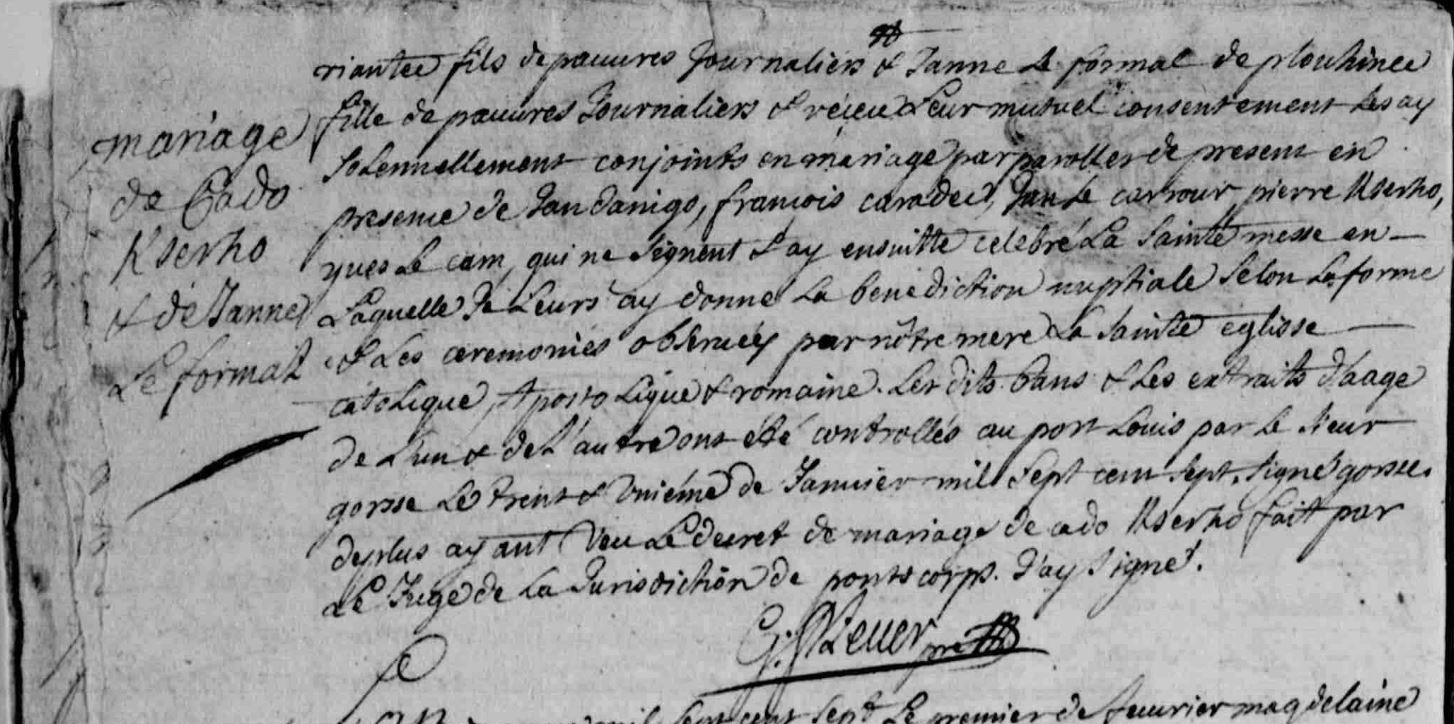 mariage
de Cado
Kserho
& de Janne
Le formal
riantec fils de pauures Journaliers & Janne Le formal de plouhinec
fille de pauures Journaliers & receu Leur mutuel consentement Les ay
solennellement conjoints en mariage par parolles de present en
presence de Jan Danigo, francois caradec, Jan Le carrour, pierre Kserho,
yues Le cam, qui ne signent & ay ensuitte celebré La Sainte messe en
Laquelle Je Leurs ay donne La benediction nuptiale selon La forme
& Les ceremonies obseruées par nôtre mere La Sainte eglisse
catolique, Apostolique & romaine. Les dits bans & Les extraits d'aage
de L'un & de L'autre ont été controllés au port Louis par le sieur
gorsse Le trent & Unième de Januier mil Sept cent Sept. signé gorsse.
de plus ayant Veu Le decret de mariage de cado Kserho fait par
Le Juge de La Jurisdiction de pontscorps. J'ay signé.
pre
mil Sept cent Sept Le premier de feuurier magdelaine